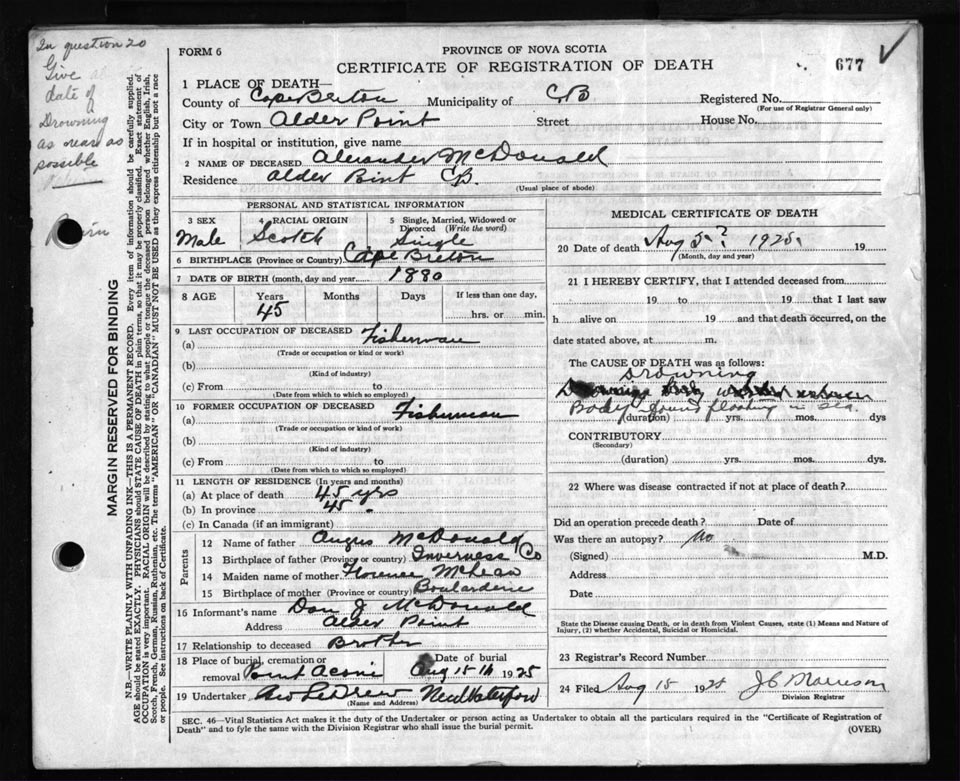 In question 20
Give
date of
Drowning
as near as
possible
MARGIN RESERVED FOR BINDING
N.B.—WRITE PLAINLY WITH UNFADING INK—THIS IS A PERMANENT RECORD. Every item of information should be carefully supplied.
AGE should be stated EXACTLY. PHYSICIANS should STATE CAUSE OF DEATH in plain terms, so that it may be properly classified. Exact statement of
OCCUPATION is very important. RACIAL ORIGIN will be described by stating to what people or tongue the deceased person belonged whether English, Irish,
Scotch, French, German, Russian, Ruthenian, etc. The terms "AMERICAN" OR "CANADIAN" MUST NOT BE USED as they express citizenship but not a race
or people. See instructions on back of Certificate.
FORM 6
PROVINCE OF NOVA SCOTIA
CERTIFICATE OF REGISTRATION OF DEATH
677
1 PLACE OF DEATH—
County of Cape Breton Municipality of C.B Registered No.
(For use of Registrar General only)
City or Town Alder Point Street House No.
If in hospital or institution, give name
2 NAME OF DECEASED Alexander McDonald
Residence Alder Point C.B.
(Usual place of abode)
PERSONAL AND STATISTICAL INFORMATION
3 SEX 4 RACIAL ORIGIN 5 Single, Married, Widowed or
Divorced (Write the word)
Male Scotch Single
6 BIRTHPLACE (Province or Country) Cape Breton
7 DATE OF BIRTH (month, day and year) 1880
8 AGE Years Months Days If less than one day,
45 hrs. or min.
9 LAST OCCUPATION OF DECEASED
(a) Fisherman
(Trade or occupation or kind or work)
(b)
(Kind of industry)
(c) From to
(Date from which to which so employed)
10 FORMER OCCUPATION OF DECEASED
(a) Fisherman
(Trade or occupation or kind of work)
(b)
(Kind of industry)
(c) From to
(Date from which to which so employed)
11 LENGTH OF RESIDENCE (In years and months)
(a) At place of death 45 yrs
(b) In province 45
(c) In Canada (if an immigrant)
Parents
12 Name of father Angus McDonald
13 Birthplace of father (Province or country) Inverness Co
14 Maiden name of mother Florence McLean
15 Birthplace of mother (Province or country) Boularderie
16 Informant's name Dan J McDonald
Address Alder Point
17 Relationship to deceased Brother
18 Place of burial, cremation or Date of burial
removal Point Aconi Aug 15 1925
19 Undertaker New Waterford
(Name and Address)
MEDICAL CERTIFICATE OF DEATH
20 Date of death Aug 5? 1925 19
(Month, day and year)
21 I HEREBY CERTIFY, that I attended deceased from
19 to 19 that I last saw
h alive on 19 and that death occurred, on the
date stated above, at m.
The CAUSE OF DEATH was as follows:
Drowning
Body found floating in sea.
(duration) yrs. mos. dys
CONTRIBUTORY
(Secondary)
(duration) yrs. mos. dys.
22 Where was disease contracted if not at place of death?
Did an operation precede death? Date of
Was there an autopsy? No
(Signed) M.D.
Address
Date
State the Disease causing Death, or in death from Violent Causes, state (1) Means and Nature of
Injury, (2) whether Accidental, Suicidal or Homicidal.
23 Registrar's Record Number
24 Filed Aug 15 1925 J C Morrison
Division Registrar
SEC. 46—Vital Statistics Act makes it the duty of the Undertaker or person acting as Undertaker to obtain all the particulars required in the "Certificate of Registration of
Death" and to fyle the same with the Division Registrar who shall issue the burial permit. (OVER)